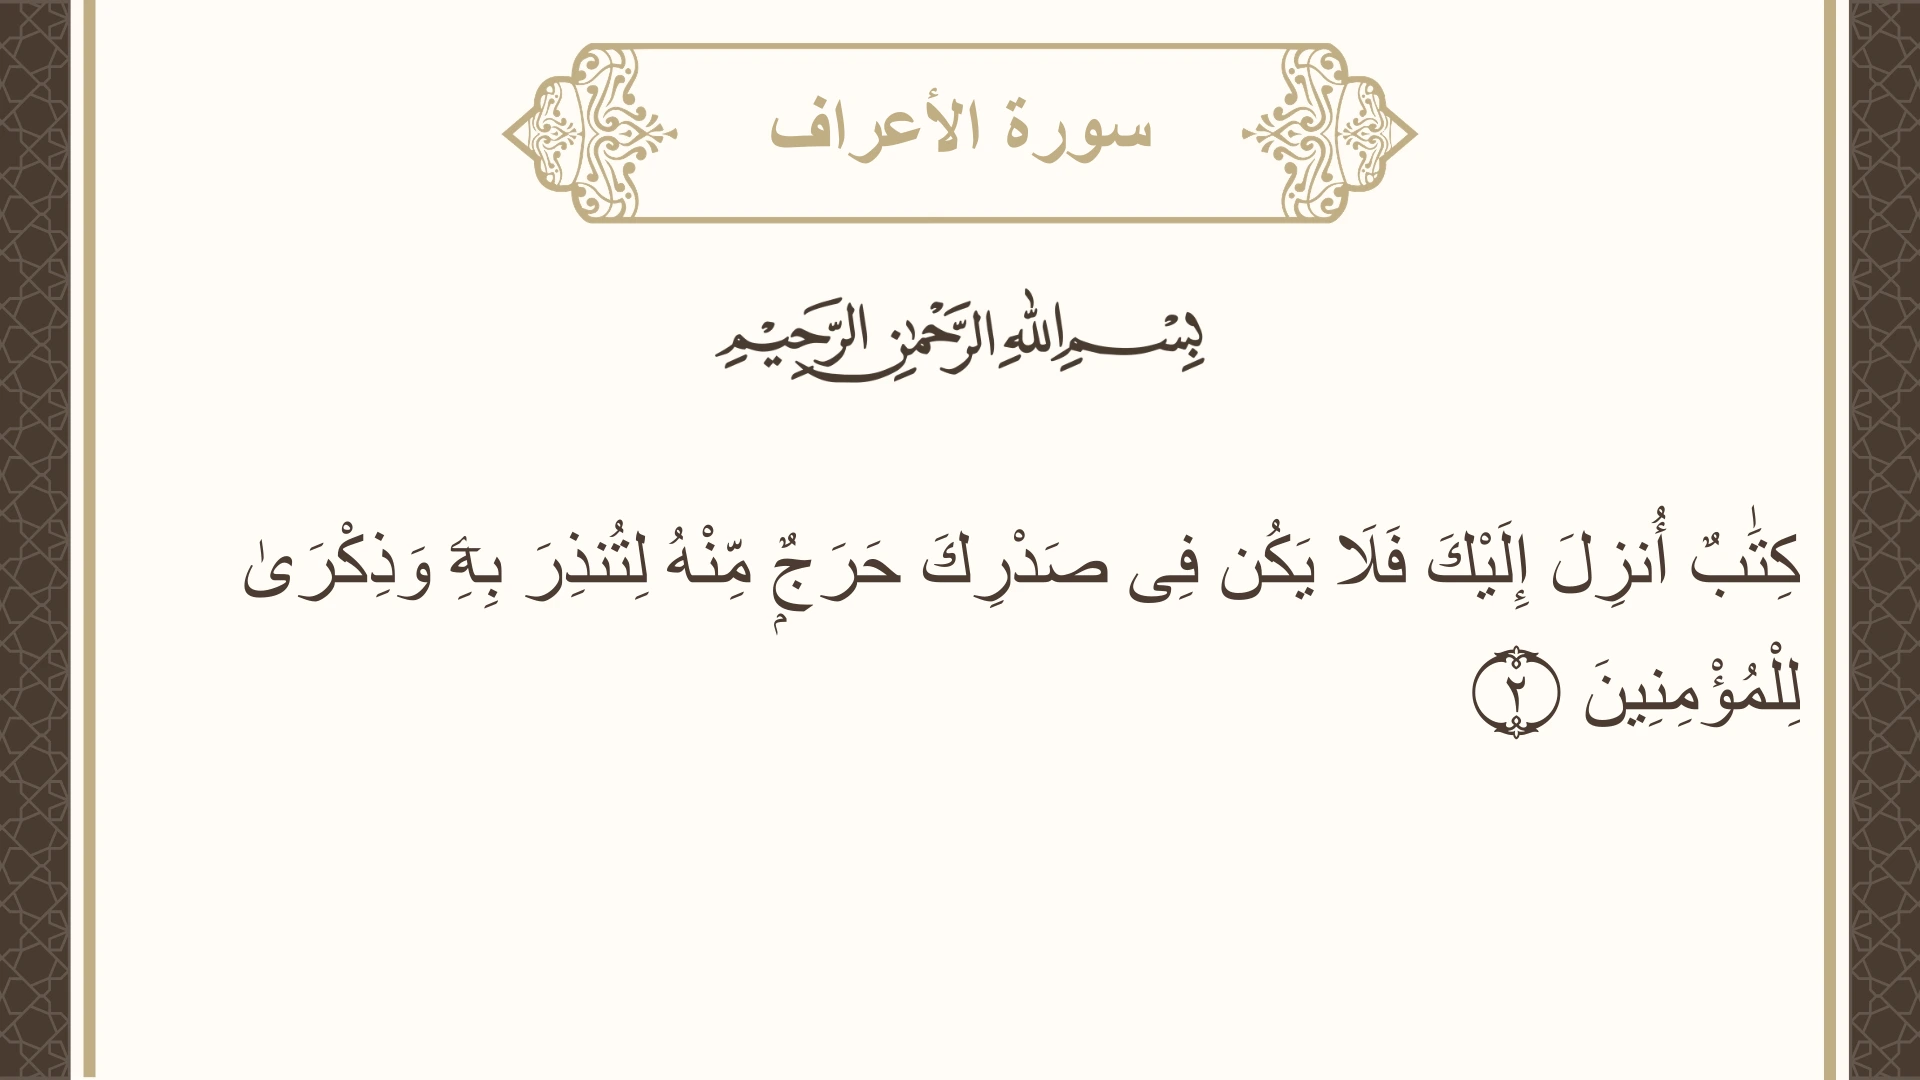 سورة الأعراف
بِسْمِ اللهِ الرَّحْمٰنِ الرَّحِيْمِ
كِتَٰبٌ أُنزِلَ إِلَيْكَ فَلَا يَكُن فِى صَدْرِكَ حَرَجٌۭ مِّنْهُ لِتُنذِرَ بِهِۦ وَذِكْرَىٰ
لِلْمُؤْمِنِينَ ٢